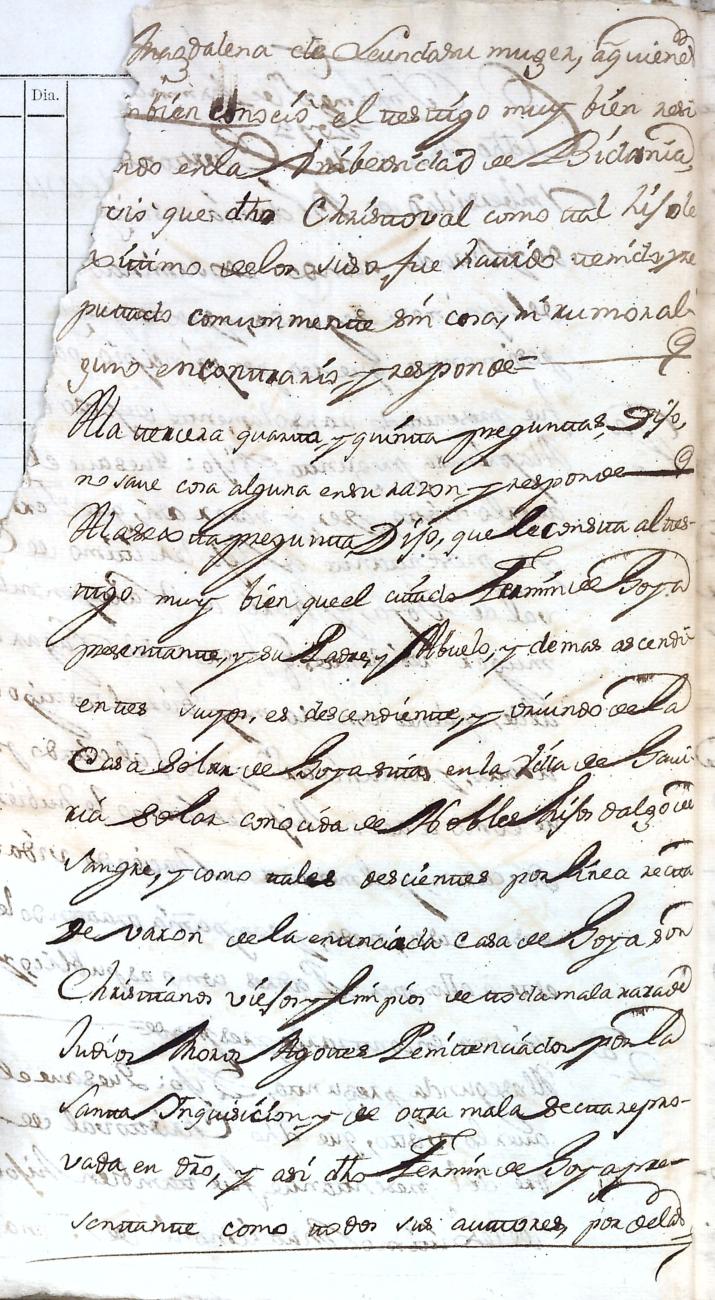 Dia.
Magdalena de Leundaru muger, aquienes
mbien conocio el testigo muy bien resi
ndo en la Unibersidad de Bidania,
rio que dho Christoval como tal hijo le
xitimo de los suso fue havido tenido, y re
putado comunmente sin cosa, ni rumor al
guno encontrario y responde
Ala tercera quarta, y quinta preguntas, Dijo,
no save cosa alguna en su razon y responde
Ala sexta pregunta Dijo, que le consta al tes-
tigo muy bien que el citado Fermin de Goya
presentante, y su Padre, y Abuelo, y demas ascendi
entes suyos, es descendiente, y oriundo de la
Casa Solar de Goya sita en la Villa de Gavi
ria Solar conocida de Nobles hijos dalgo de
sangre, y como tales descientes por linea recta
de varon de la enunciada casa de Goya son
Christianos viejos y limpios de toda mala raza de
Judios Moros Agotes Penitenciados por la
Santa Inquisicion y de otra mala secta repro-
vada en dro, y asi dho Fermin de Goya pre-
sentante como todos sus autores, por de la